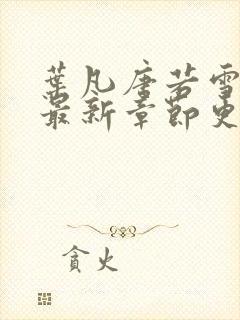 葉凡唐若雪
最新章節更
貪火